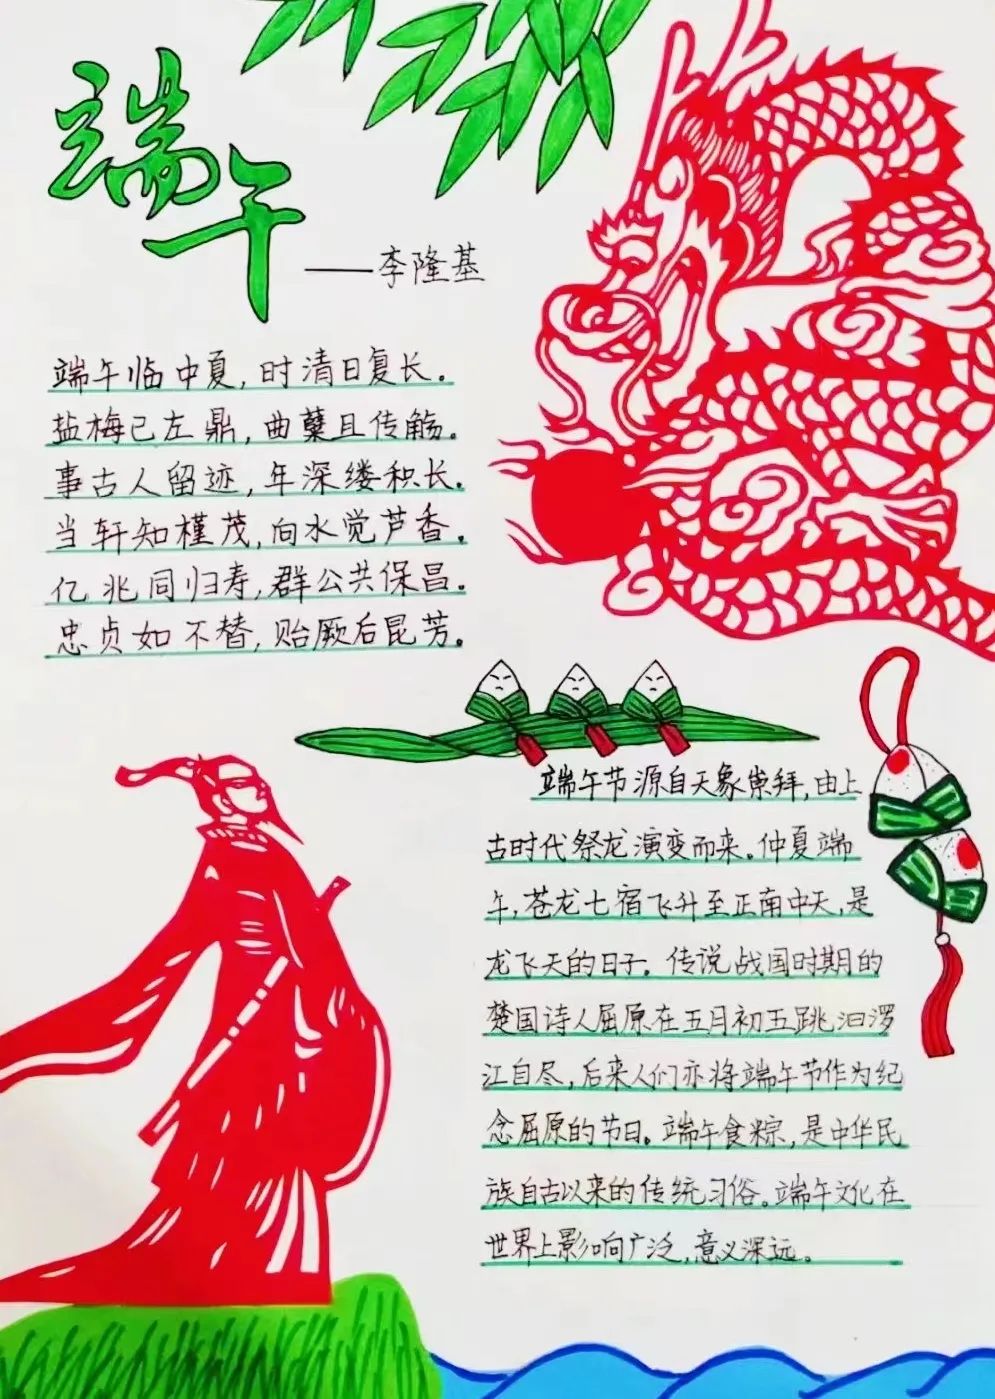 端午
——李隆基
端午临中夏，时清日复长。
盐梅已左鼎，曲糵且传觞。
事古人留迹，年深缕积长。
当轩知槿茂，向水觉芦香。
亿兆同归寿，群公共保昌。
忠贞如不替，贻厥后昆芳。
端午节源自天象崇拜，由上
古时代祭龙演变而来。仲夏端
午，苍龙七宿飞升至正南中天，是
龙飞天的日子。传说战国时期的
楚国诗人屈原在五月初五跳汨罗
江自尽，后来人们亦将端午节作为纪
念屈原的节日。端午食粽，是中华民
族自古以来的传统习俗。端午文化在
世界上影响广泛，意义深远。